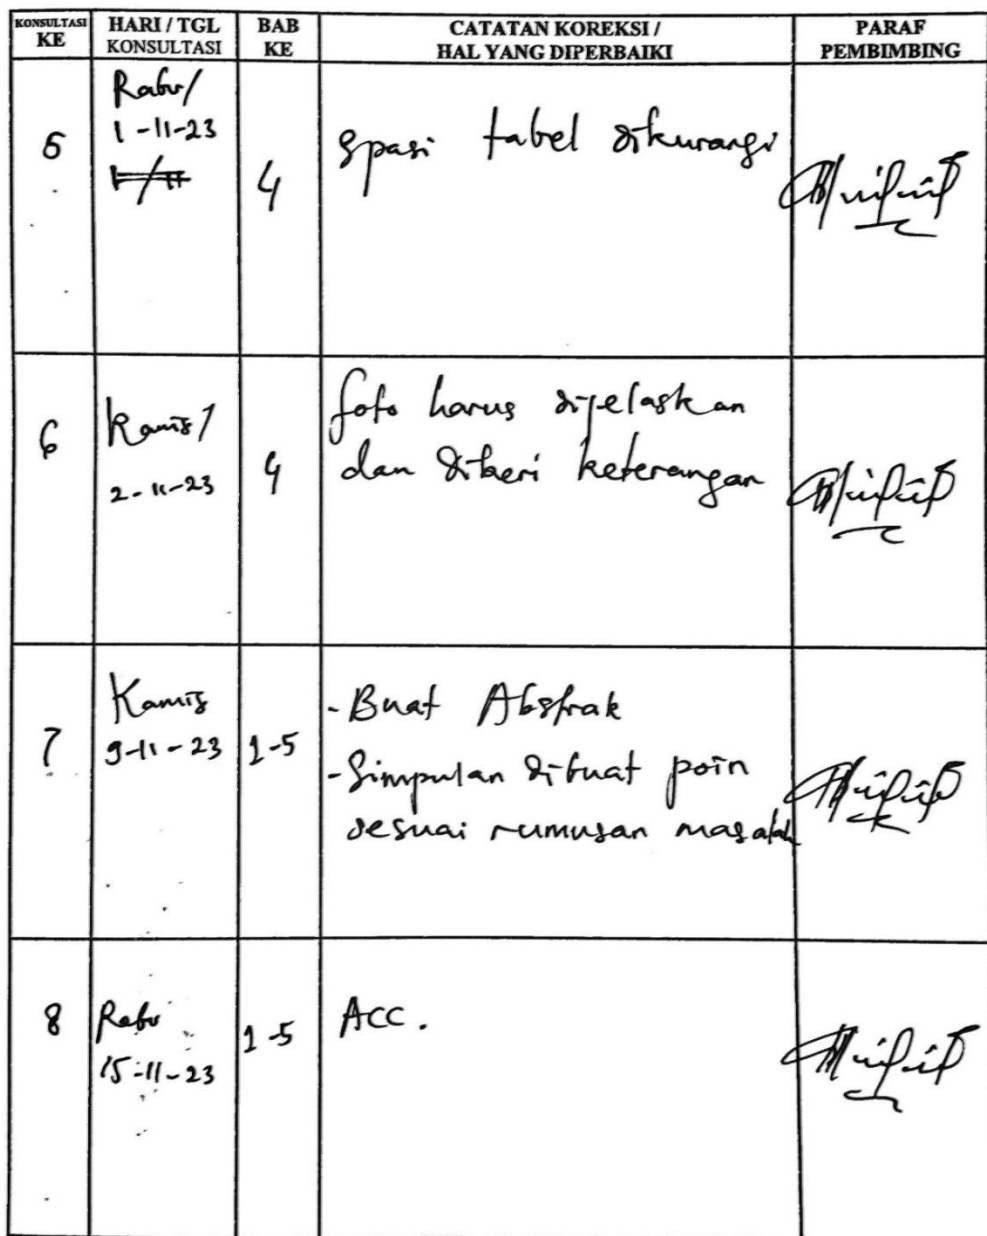 KONSULTASI KE
HARI / TGL KONSULTASI
BAB KE
CATATAN KOREKSI / HAL YANG DIPERBAIKI
PARAF PEMBIMBING
5
Rabu/
1-11-23
4
Spasi tabel dikurangi
6
Kamis/
2-11-23
4
foto harus dijelaskan
dan diberi keterangan
7
Kamis
9-11-23
1-5
- Buat Abstrak
- Simpulan dibuat poin
sesuai rumusan masalah
8
Rabu
15-11-23
1-5
Acc.